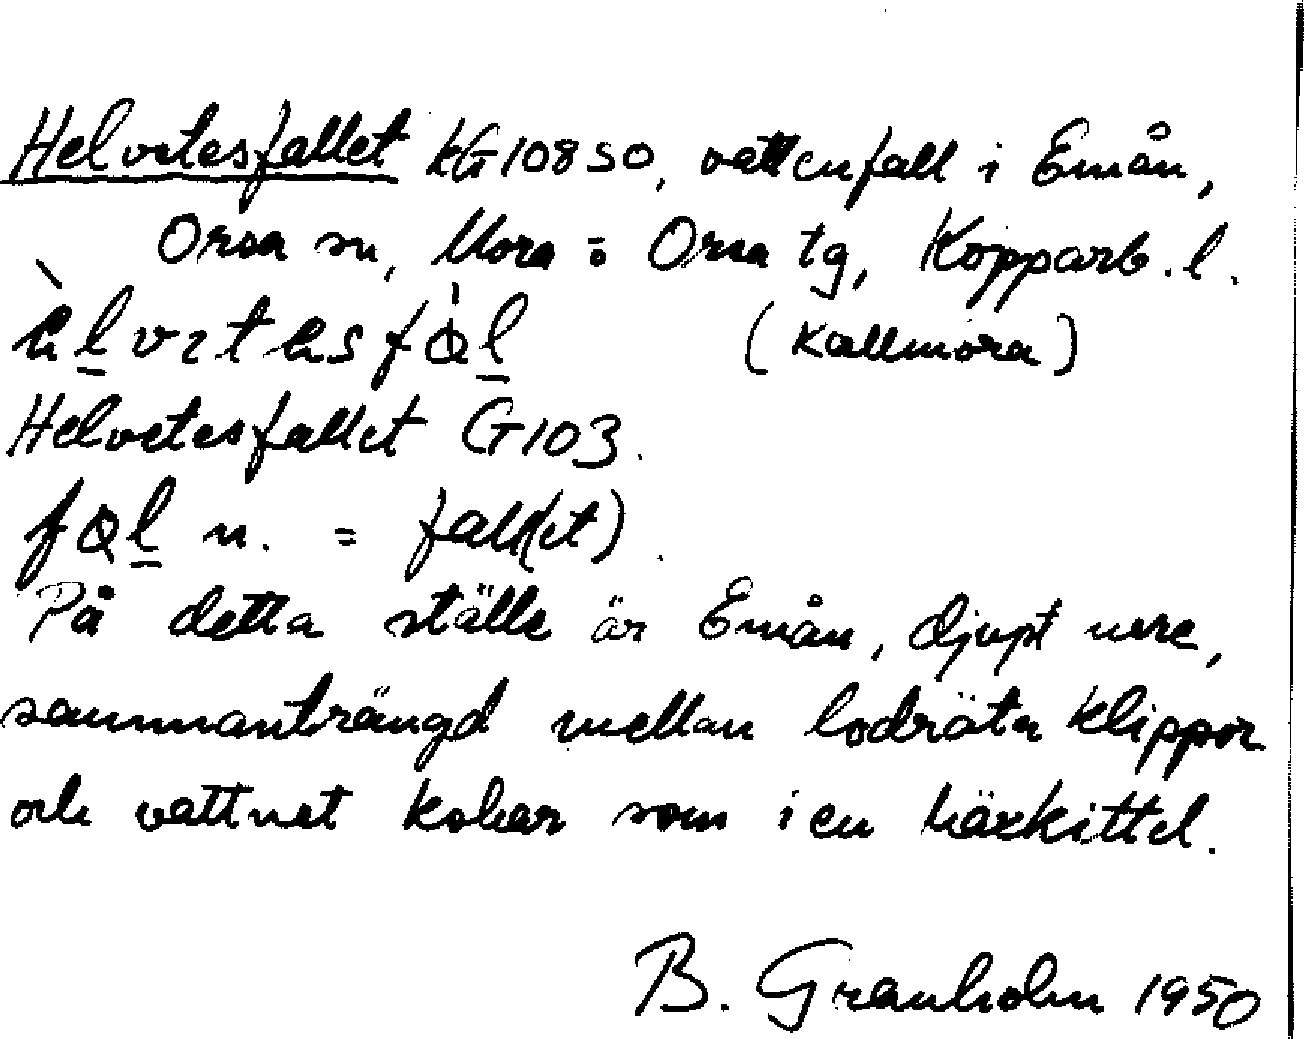 Helvetesfallet KG 108 SO, vattenfall i Emån,
Orsa sn, Mora o Orsa tg, Kopparb. l.
(Kallmora)
Helvetesfallet G 103.
n. = fall(et).
På detta ställe är Emån, djupt nere,
sammanträngd mellan lodräta klippor
och vattnet kokar som i en häxkittel.
B. Granholm 1950